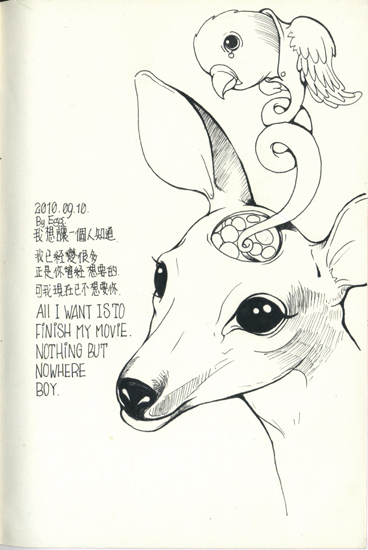 2010.09.10.
By Eggs.
我想讓一個人知道.
我已經變很多
正是你曾經想要的.
可我現在已不想要你.
All I WANT IS TO
FINISH MY MOVIE.
NOTHING BUT
NOWHERE
BOY.